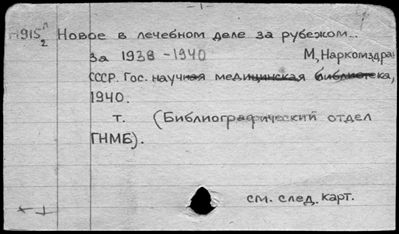 - 1 -
П915₂ Новое в лечебном деле за рубежом...
за 1938-1940 М, Наркомздрав
СССР. Гос. научная медицинская библиотека,
1940.
т. (Библиографический отдел
ГНМБ).
см. след. карт.